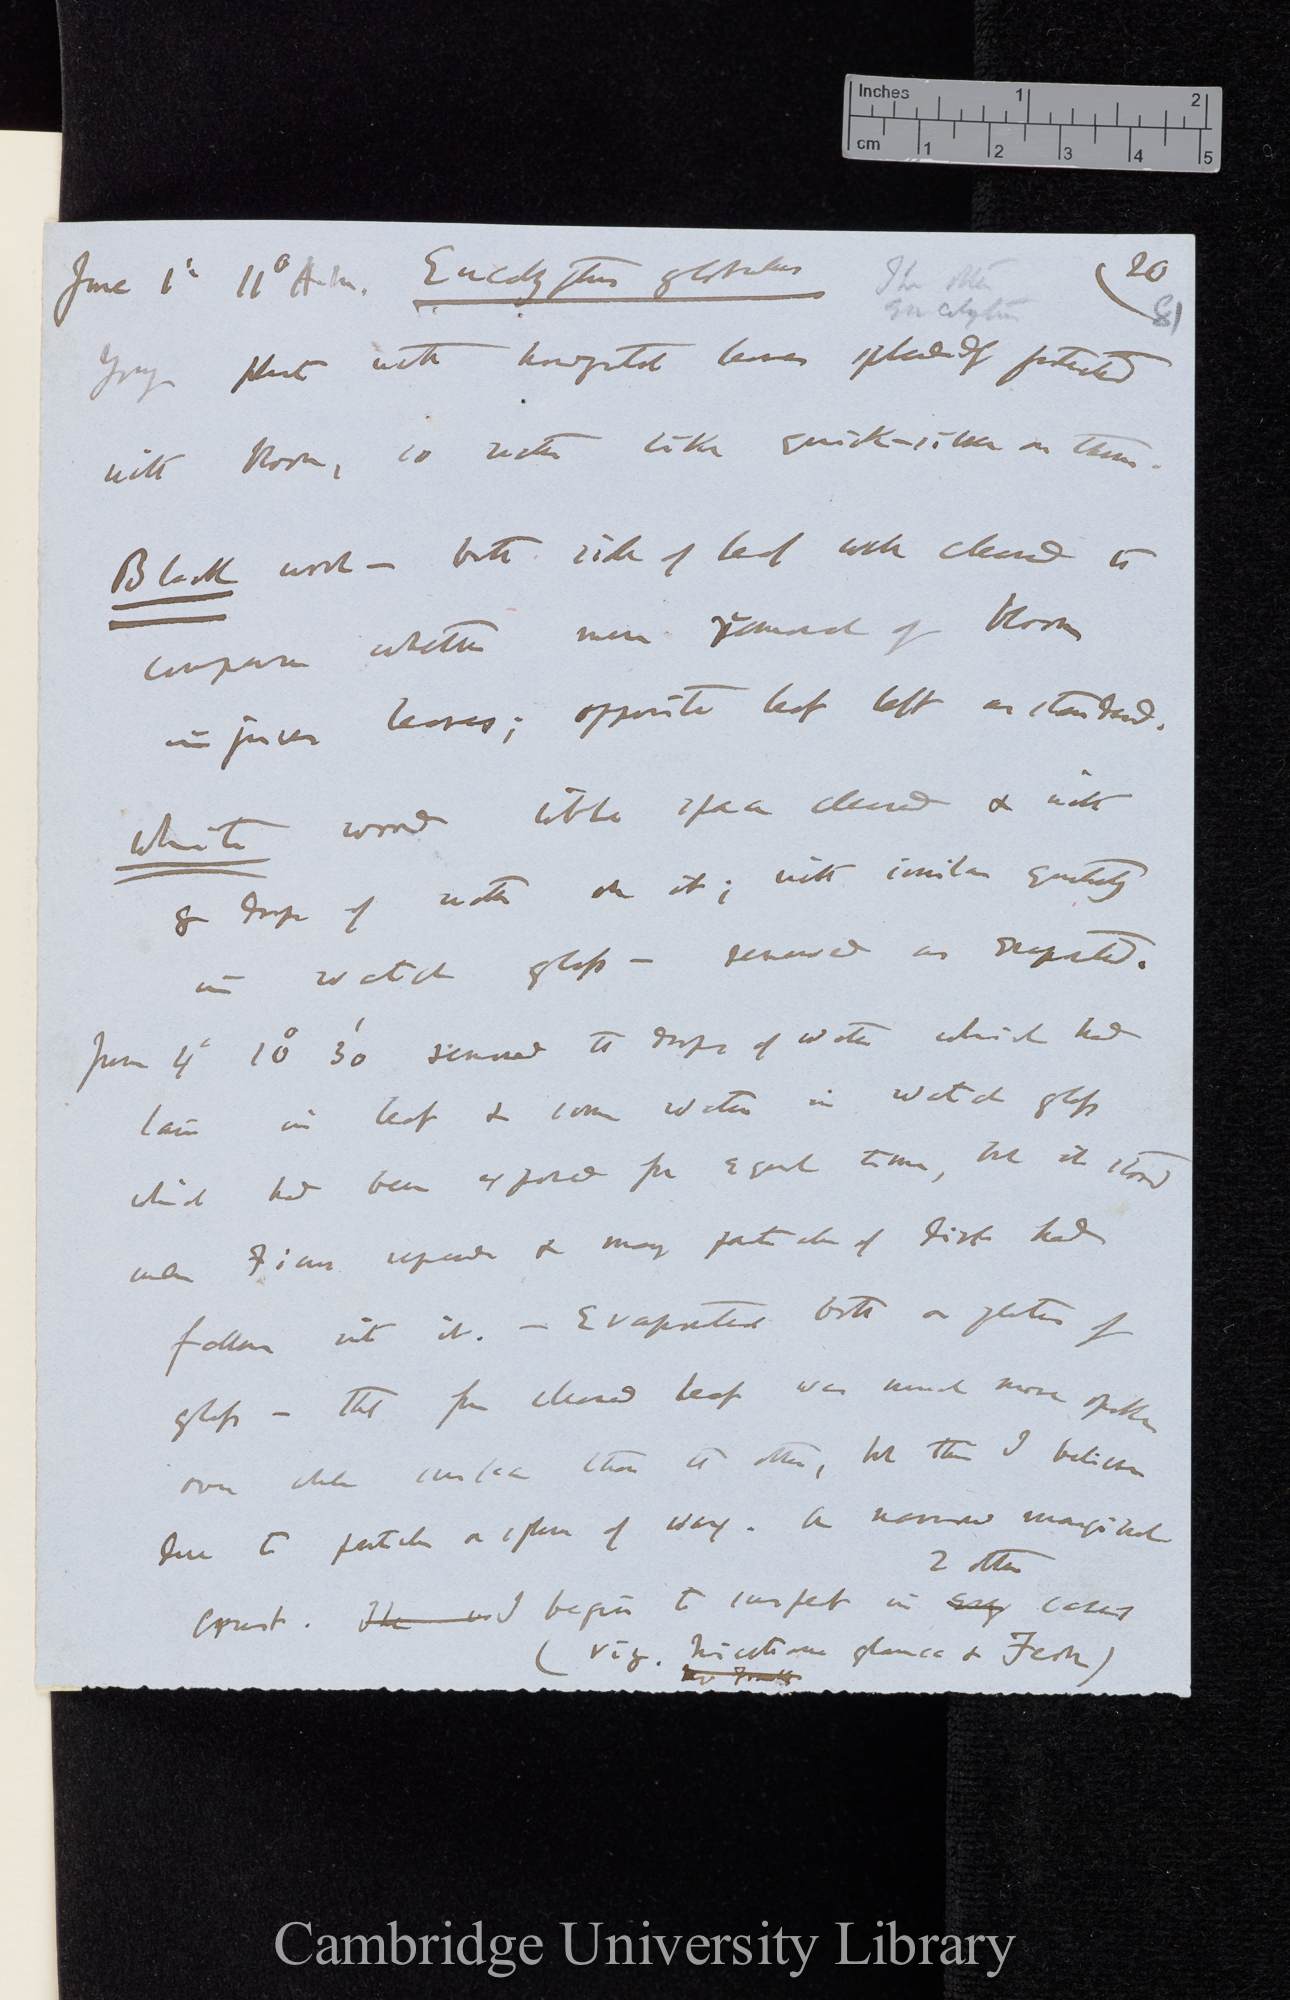 Inches 1 2
cm 1 2 3 4 5
June 1st 11° A.m. Eucalyptus globulus The other (20
Eucalyptus 81
Young plant with horizontal leaves splendidly protected
with bloom, so water like quick-silver on them.
Black wool — both side of leaf well cleaned to
compare whether mere removal of bloom
injures leaves; opposite leaf left as standard.
White wool little space cleaned & with
drops of water on it; with similar quantity
in watch glass — renewed as evaporated.
June 4th 10° 30' removed the drops of water which had
lain on leaf & some water in watch glass
which had been exposed for equal time, but it stood
under & many particles of dirt had
fallen into it. — Evaporated both on plates of
glass — that from cleaned leaf was much more
over whole surface than the other, but this I believe
due to particles or of wax. A narrow marginal
2 other
crust. I begin to suspect in cases
(viz. Nicotiana glauca &
Cambridge University Library